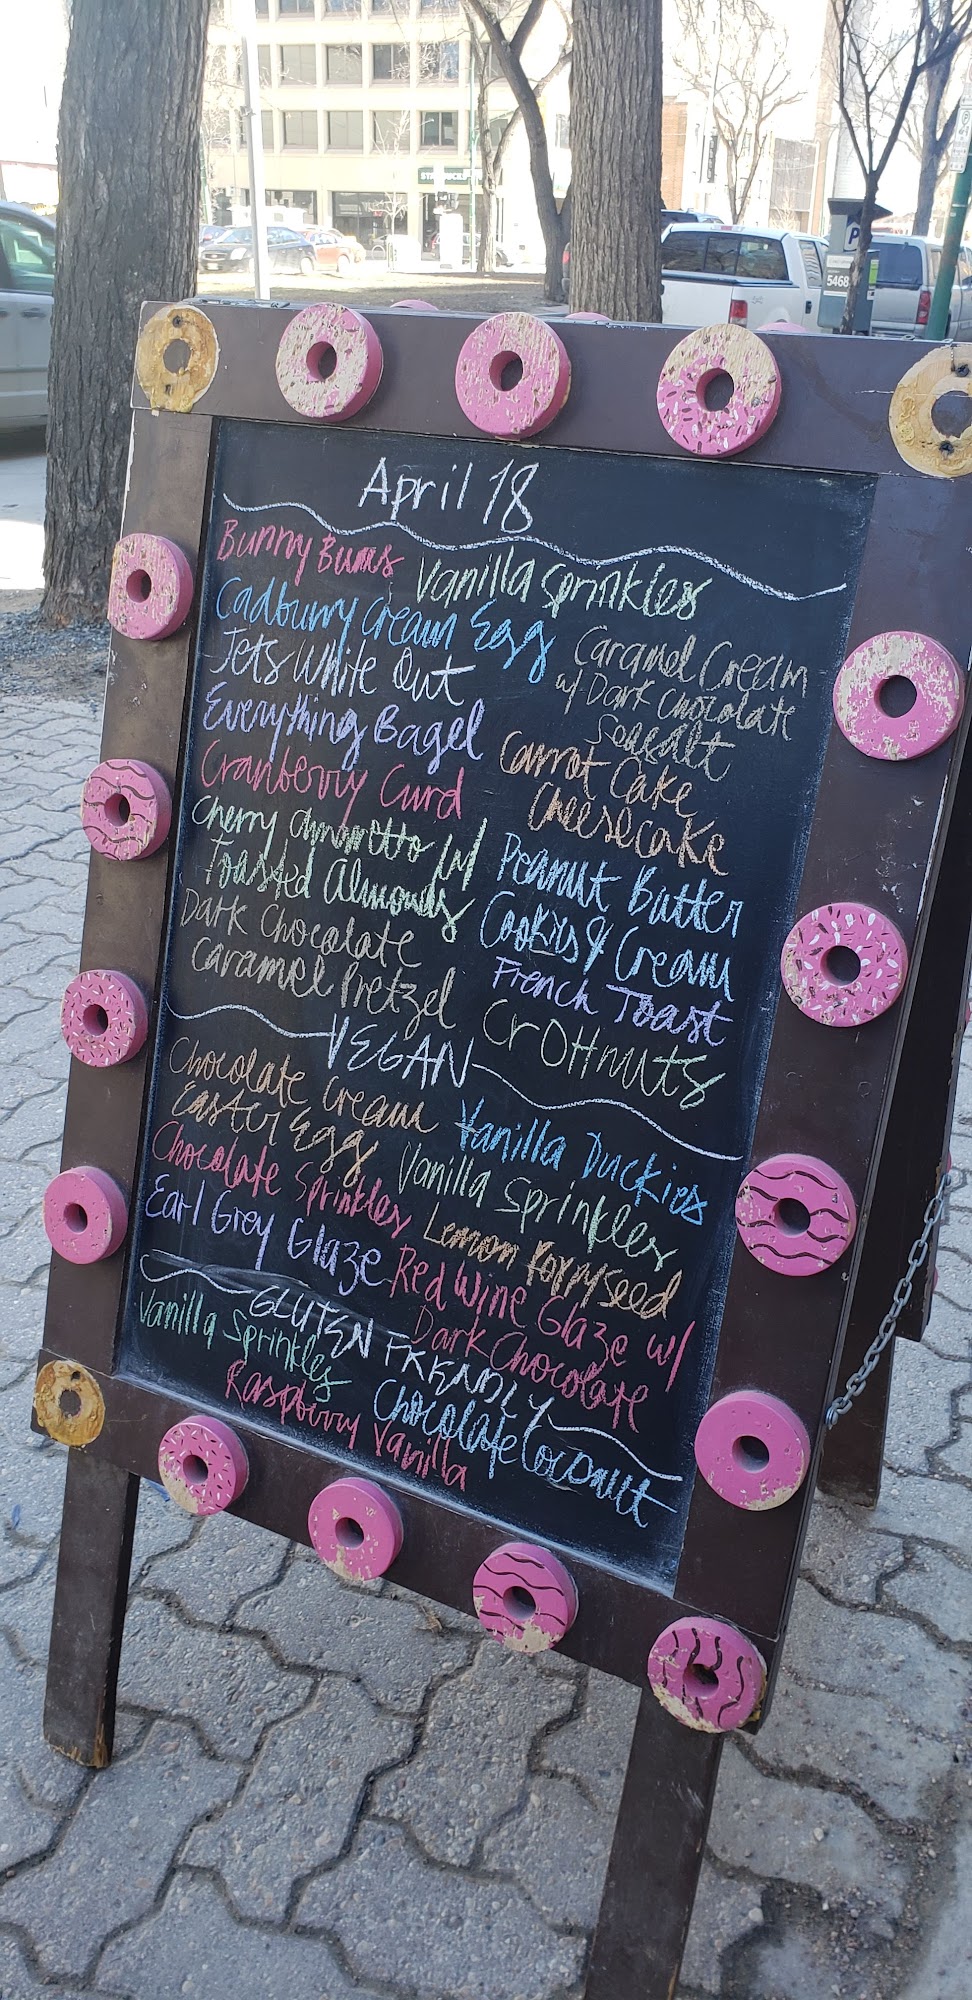 STARBUCKS
P
5468
April 18
Bunny Bums
Vanilla Sprinkles
Cadburry Cream Egg
Jets White Out
Everything Bagel
Cranberry Curd
Cherry Amaretto w/
Toasted Almonds
Dark Chocolate
Caramel Pretzel
Caramel Cream
w/ Dark Chocolate
Seasalt
Carrot Cake
Cheesecake
Peanut Butter
Cookies & Cream
French Toast
CrOHnuts
VEGAN
Chocolate Cream
Easter Egg
Chocolate Sprinkles
Earl Grey Glaze
Vanilla Duckies
Vanilla Sprinkles
Lemon Poppyseed
Red Wine Glaze w/
Dark Chocolate
GLUTEN FRIENDLY
Vanilla Sprinkles
Raspberry Vanilla
Chocolate Coconut